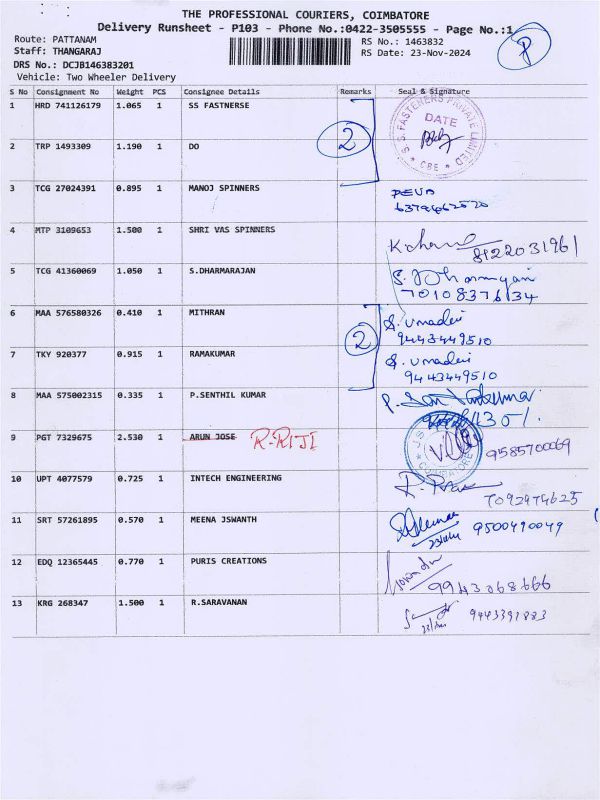 THE PROFESSIONAL COURIERS, COIMBATORE
Delivery Runsheet - P103 - Phone No.:0422-3505555 - Page No.:1
P
Route: PATTANAM
RS No.: 1463832
Staff: THANGARAJ
RS Date: 23-Nov-2024
DRS No.: DCJB146383201
Vehicle: Two Wheeler Delivery
S No Consignment No Weight PCS Consignee Details Remarks Seal & Signature
1 HRD 741126179 1.065 1 SS FASTNERSE
S.S. FASTENERS PRIVATE LIMITED
DATE
CBE
2
2 TRP 1493309 1.190 1 DO
3 TCG 27024391 0.895 1 MANOJ SPINNERS
4 MTP 3109653 1.500 1 SHRI VAS SPINNERS
8122031961
5 TCG 41360069 1.050 1 S.DHARMARAJAN
70108376134
6 MAA 576580326 0.410 1 MITHRAN S. Umadevi
9443449510
2
7 TKY 920377 0.915 1 RAMAKUMAR S. Umadevi
9443449510
8 MAA 575002315 0.335 1 P.SENTHIL KUMAR
9 PGT 7329675 2.530 1 ARUN JOSE R-RIJI 9585700069
COIMBATORE
10 UPT 4077579 0.725 1 INTECH ENGINEERING
7092474625
11 SRT 57261895 0.570 1 MEENA JSWANTH 9500490049
12 EDQ 12365445 0.770 1 PURIS CREATIONS
9943068666
13 KRG 268347 1.500 1 R.SARAVANAN 9443391883